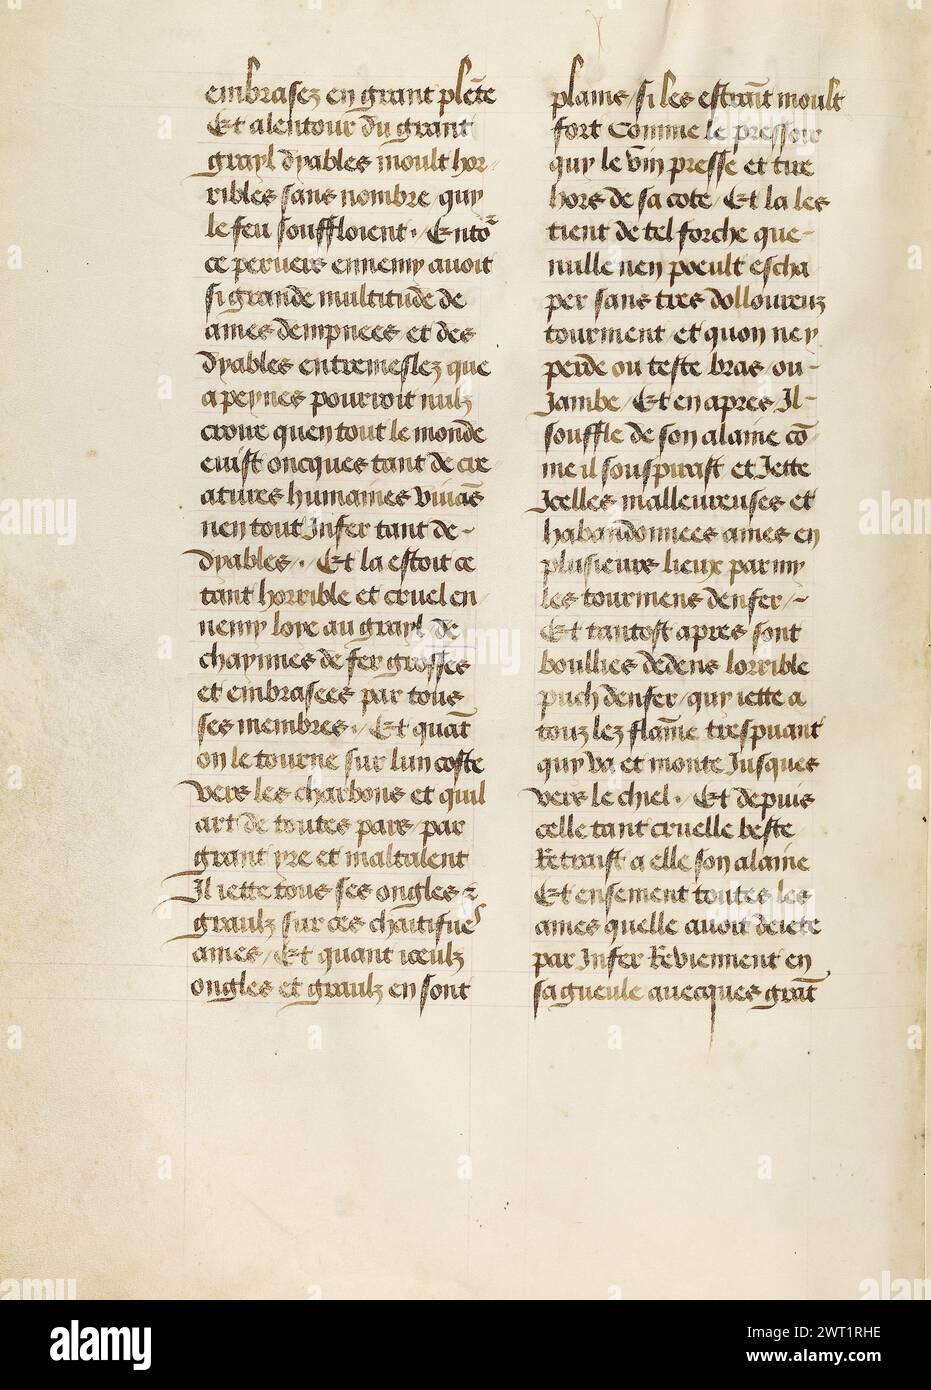 embrasez en grant plēte
Et alentour du grant
grayl dyables moult hor-
ribles sans nombre quy
le feu souffloient. / Entor
ce pervers ennemy avoit
si grande multitude de
ames dempnees et des
dyables entremeslez que
a peynes pourroit nulz
croire quen tout le monde
euist oncques tant de cre
atures humaines vivās
nen tout Infer tant de-
dyables. / Et la estoit ce
tant horrible et cruel en
nemy loye au grayl de
chaynnes de fer grosses
et embrasees par tous
ses membres. / Et quāt
on le tourne sur lun coste
vers les charbons et quil
art de toutes pars / par
grant yre et maltalent
Il iette tous ses ongles &
graulz sur ces chaitifues
ames / Et quant iceulz
ongles et graulz en sont
plains / si les estraīt moult
fort Comme le pressoir
quy le vin presse et tire
hors de sa cote / Et la les
tient de tel forche que-
nulle nen poeult escha
per sans tres dollourenz
tourment / et quon ne y
perde ou teste bras / ou-
Jambe / Et en apres Il-
souffle de son alaine cō
me il souspirast et Jette
Icelles malleureuses et
habandonnees ames en
plusieurs lieux parmy
les tourmens denfer / ~
Et tantost apres sont
boullies dedens lorrible
puch denfer / quy iette a
touz lez flāme trespuant
quy va et monte Jusques
vers le chiel. / Et depuis
celle tant cruelle beste
Retraist a elle son alaine
Et ensement toutes les
ames quelle avoit deiete
par Infer Reviennent en
sa gueule avecques grāt
alamy
Image ID: 2WT1RHE
www.alamy.com